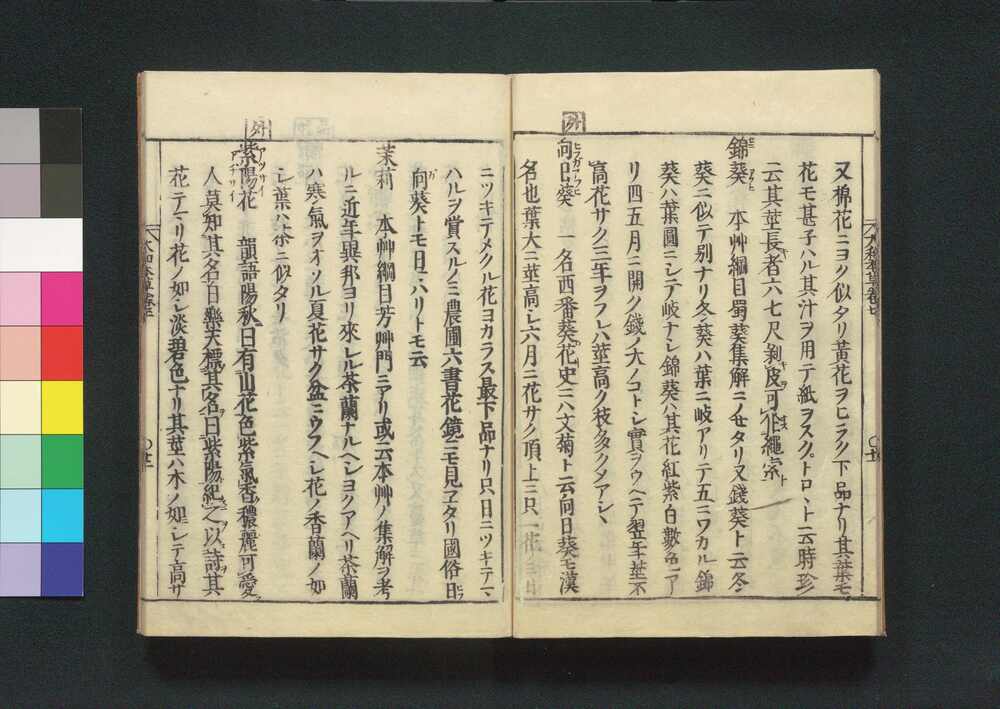 又棉花ニヨク似タリ黄花ヲヒラク下品ナリ其葉モ
花モ甚子ハル其汁ヲ用テ紙ヲスクトロヽト云時珍
云其莖長者六七尺剥皮可作繩索
錦葵 本艸綱目蜀葵集解ニノセタリ又錢葵ト云冬
葵ニ似テ別ナリ冬葵ハ葉ニ岐アリテ五ニワカル錦
葵ハ葉圓ニシテ岐ナシ錦葵ハ其花紅紫白數色ア
リ四五月ニ開ク錢ノ大ノコトシ實ヲウヘテ翌年莖不
高花サク三年ヲフレハ莖高ク枝多クメアシヽ
外
向日葵 一名西番葵花史ニハ文菊ト云向日葵モ漢
名也葉大ニ莖高シ六月ニ花サク頂上ニ只一花
ニツキテメクル花ヨカラス最下品ナリ只日ニツキテマ
ハルヲ賞スルノミ農圃六書花鏡ニモ見ヱタリ國俗日
向葵トモ日マハリトモ云
茉莉 本艸綱目芳艸門ニアリ或云本艸ノ集解ヲ考
ルニ近年異邦ヨリ來レル茶蘭ナルヘシヨクアヘリ茶蘭
ハ寒氣ヲオソル夏花サク盆ニウフヘシ花ノ香蘭ノ如
シ葉ハ茶ニ似タリ
外
紫陽花 アツサイ 韻語陽秋曰有山花色紫氣香穠麗可愛
人莫知其名白樂天標其名曰紫陽紀之以詩其
花テマリ花ノ如シ淡碧色ナリ其莖ハ木ノ如シテ高サ